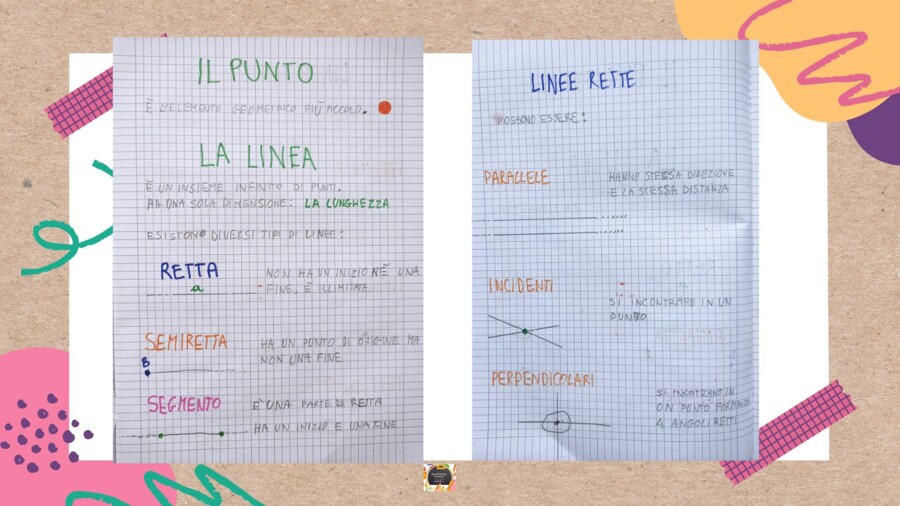 IL PUNTO
È L'ELEMENTO GEOMETRICO PIÙ PICCOLO.
LA LINEA
È UN INSIEME INFINITO DI PUNTI.
HA UNA SOLA DIMENSIONE: LA LUNGHEZZA
ESISTONO DIVERSI TIPI DI LINEE:
RETTA
a
NON HA UN INIZIO NÈ UNA
FINE, È ILLIMITATA
SEMIRETTA
B
HA UN PUNTO DI ORIGINE MA
NON UNA FINE
SEGMENTO
E' UNA PARTE DI RETTA
HA UN INIZIO E UNA FINE
LINEE RETTE
POSSONO ESSERE:
PARALLELE
HANNO STESSA DIREZIONE
E LA STESSA DISTANZA
INCIDENTI
SI INCONTRANO IN UN
PUNTO
PERPENDICOLARI
SI INCOTRANO IN
UN PUNTO FORMANDO
4 ANGOLI RETTI